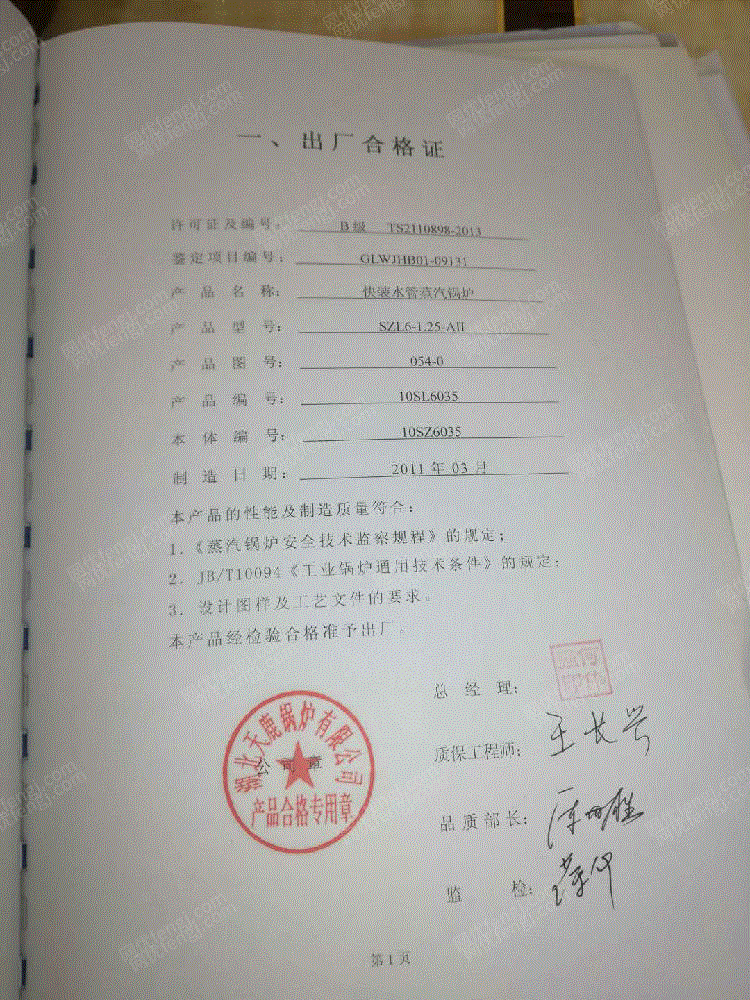 一、出厂合格证
许可证及编号： B级 TS2110898-2013
鉴定项目编号： GLWJHB01-09131
产品名称： 快装水管蒸汽锅炉
产品型号： SZL6-1.25-AII
产品图号： 054-0
产品编号： 10SL6035
本体编号： 10SZ6035
制造日期： 2011年03月
本产品的性能及制造质量符合：
1．《蒸汽锅炉安全技术监察规程》的规定；
2．JB/T10094《工业锅炉通用技术条件》的规定；
3．设计图样及工艺文件的要求。
本产品经检验合格准予出厂。
总经理：
质保工程师： 王长兴
品质部长：
监检：
湖北天鹿锅炉有限公司
公司章
产品合格专用章
第1页